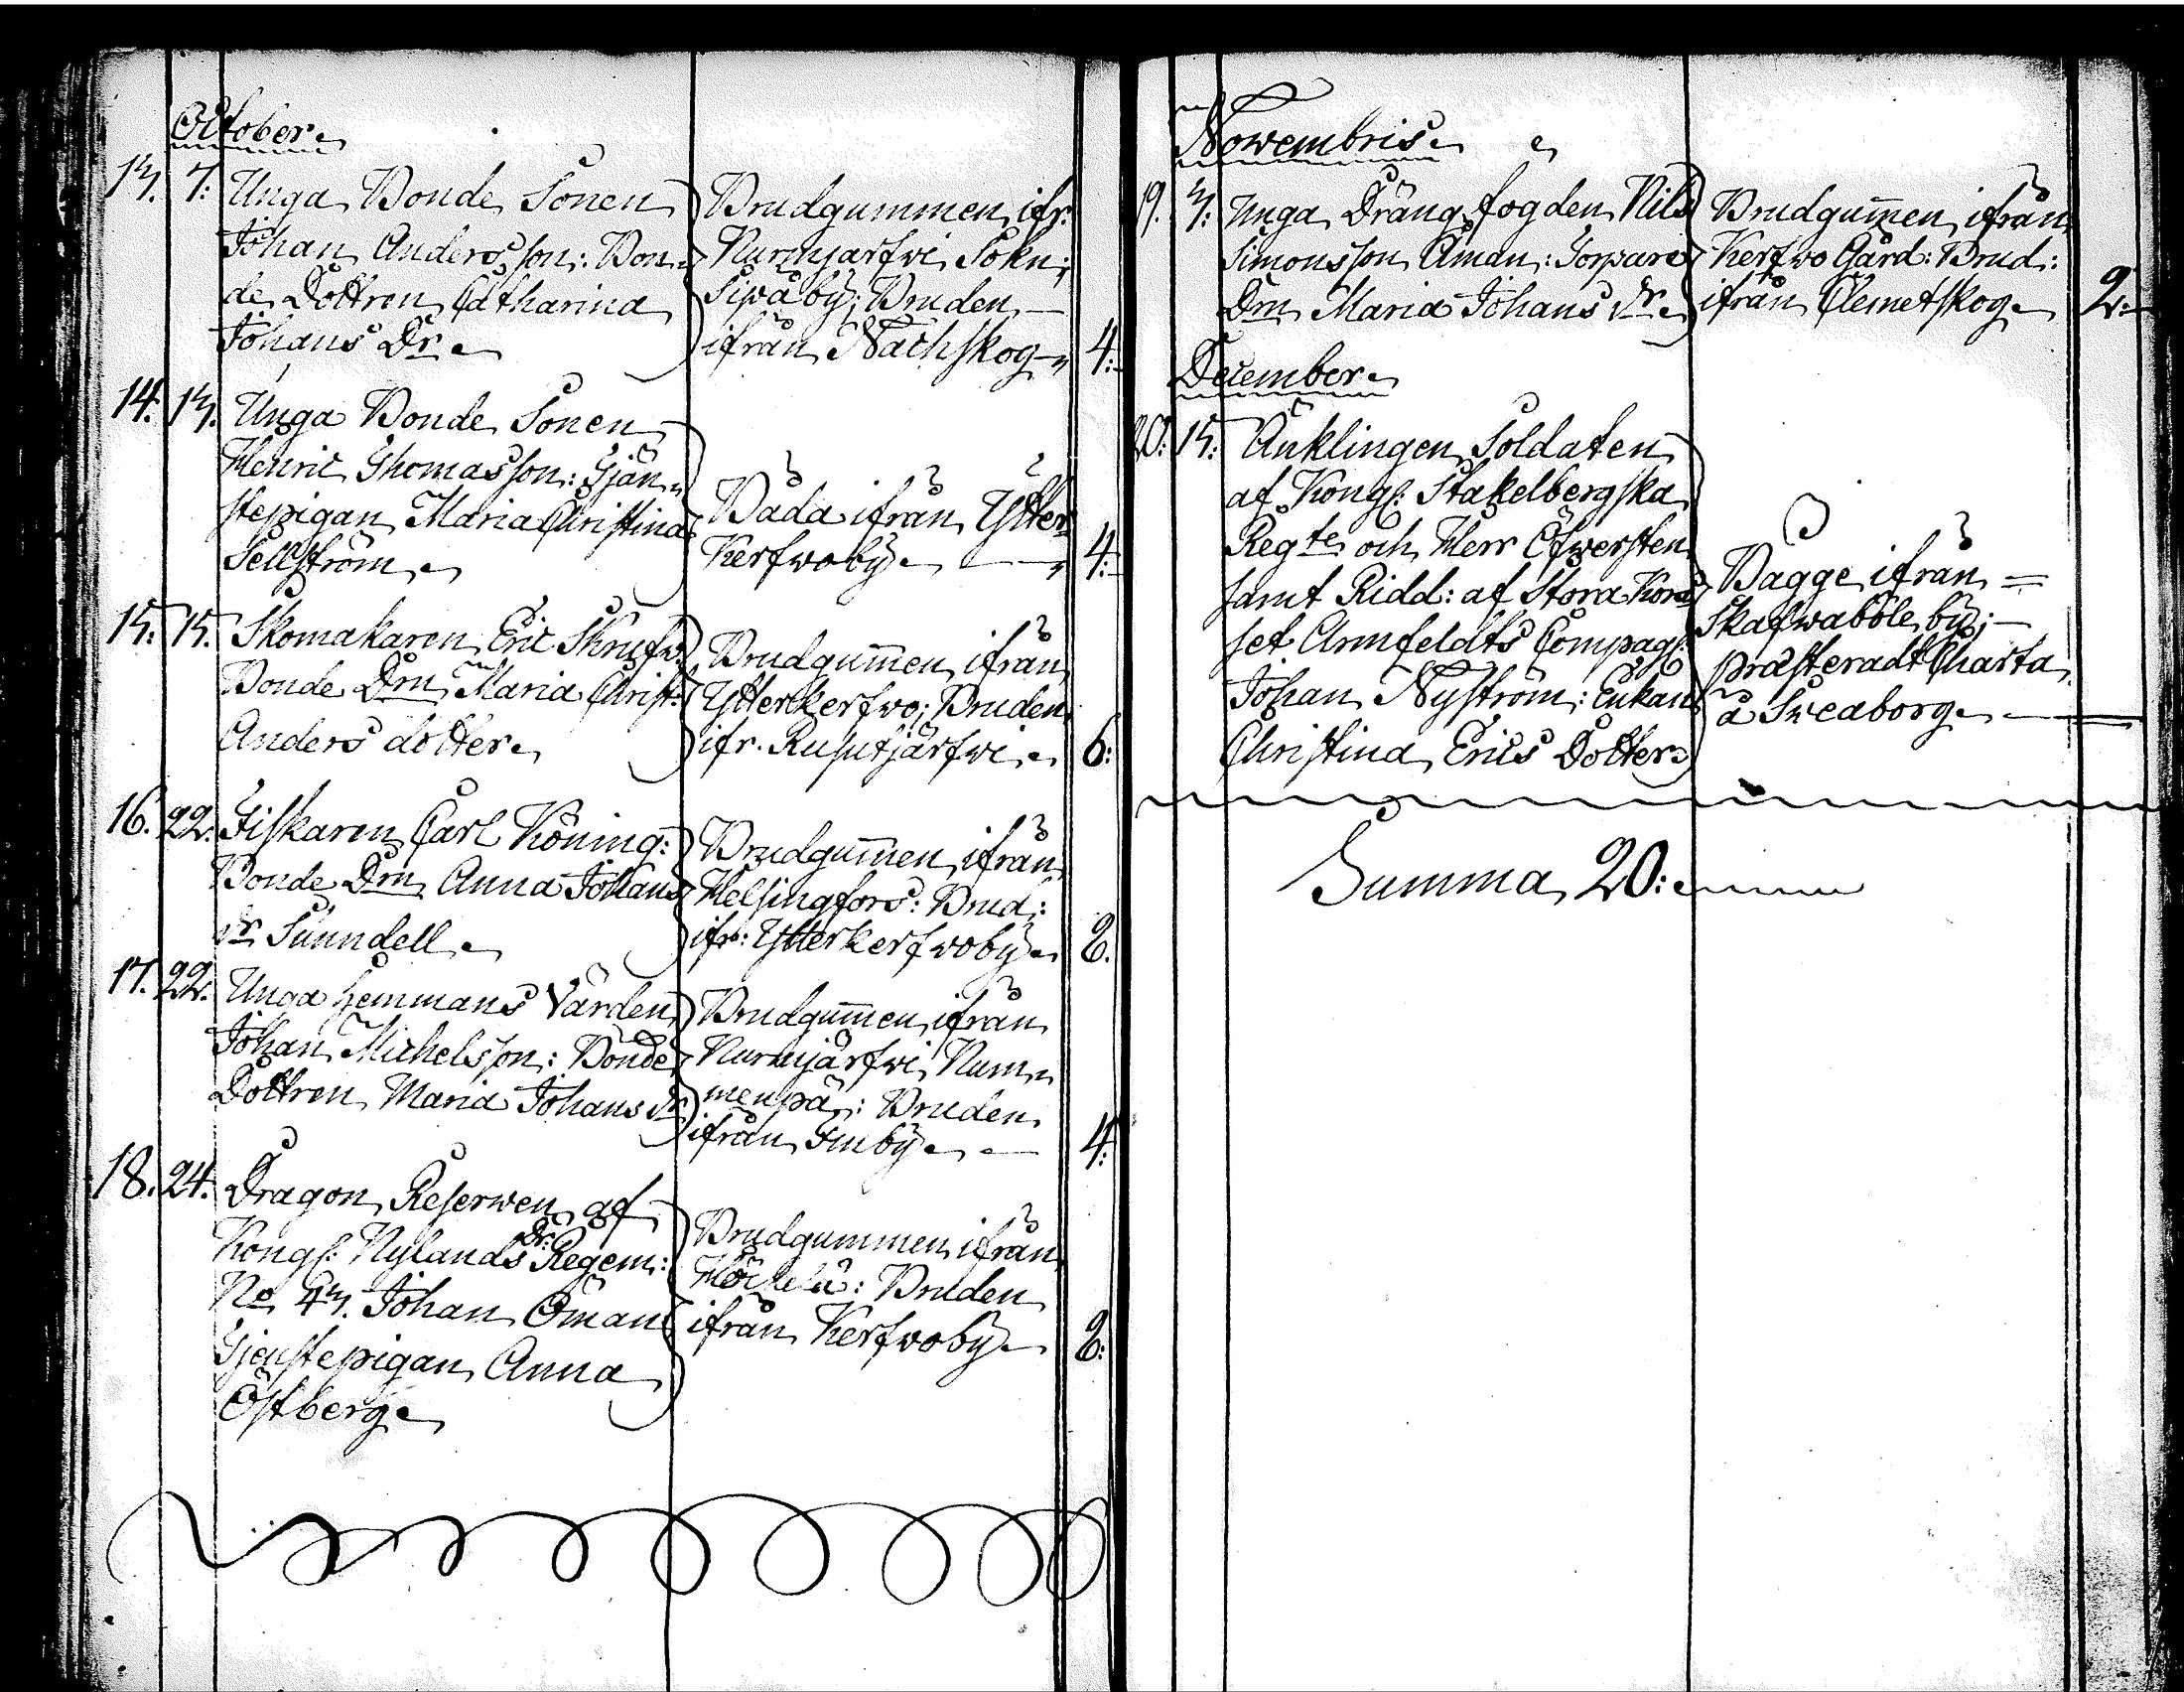 October
13. 7: Unga Bonde Sonen
Johan Andersson: Bon-
de Dottren Catharina
Johans Dr
Brudgummen ifr:
Nurmjärfwi Sokn;
Sipåbÿ; Bruden
ifrån Nachskog 4:
14. 13. Unga Bonde Sonen
Henric Thomasson: Tjän-
stepigan Maria Christina
Sellström
Båda ifrån Ytter
Kerfwobÿ 4:
15: 15. Skomakaren Eric Skrufw:
Bonde Drn Maria Christ:
Anders dotter
Brudgum̄en ifrån
Ytterkerfwo; Bruden
ifr. Rusutjärfwi 6:
16. 22. Fiskaren Carl Köning:
Bonde Drn Anna Johans
dr Sunndell
Brudgum̄en ifrån
Helsingfors: Brud:
ifr: Ytterkerfwobÿ 8.
17. 22. Unga Hemmans Värden
Johan Michelsson: Bonde
Dottren Maria Johans dr
Brudgum̄en ifrån
Nurmjärfwi Num-
menpä: Bruden
ifrån Finbÿ 4:
18. 24. Dragon Reserwen af
Kongl: Nylands Dr: Regem:
No 43. Johan Öman
Tjenstepigan Anna
Östberg
Brudgummen ifrån
: Bruden
ifrån Kerfwobÿ 8:
Nowembris
19. 3: Unga Dräng fogden Nils
Simonsson Åman: Torpare
Drn Maria Johans dr
Brudgum̄en ifrån
Kerfwo Gård: Brud:
ifrån Clemetskog 2:
December
20: 15: Änklingen Soldaten
af Kongl: Stakelbergska
Regte och Herr Öfwersten
samt Ridd: af Stora Kor-
set Armfeldts Compagl:
Johan Nyström: Enkan
Christina Erics Dotter
Bägge ifrån
Skafwaböle bÿ;
præsteradt Charta
å Sweaborg
Summa 20: